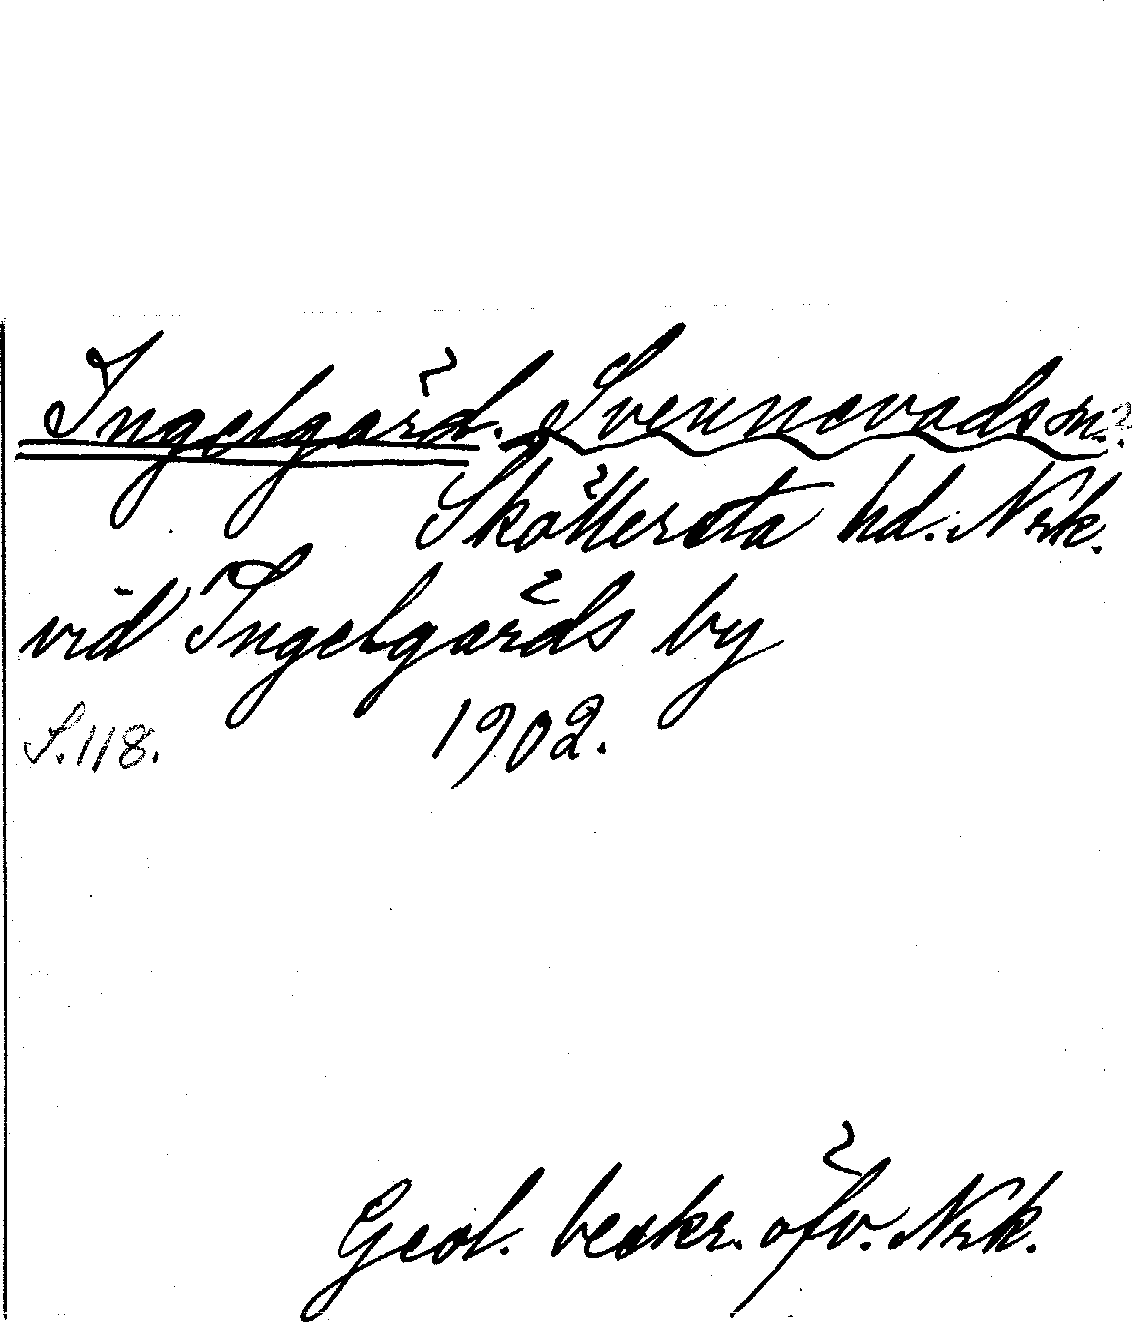 Ingelgård. Svennevads sn.?
Skållersta hd. Nrk.
vid Ingelgårds by
S. 118. 1902.
Geol. beskr. öfv. Nrk.